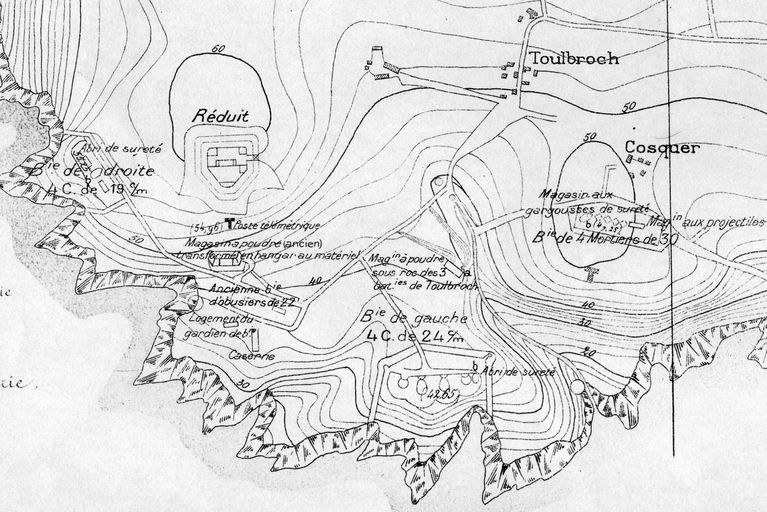 60
Toulbroch
Réduit
50
50
Cosquer
Abri de sureté
Bie de droite
4 C. de 19 c/m
Magasin aux
gargousses de sureté
Magin aux projectiles
Bie de 4 Mortiers de 30
(54,96) Poste télémétrique
Magasin à poudre (ancien)
transformé en hangar au matériel
30
Magin à poudre
sous roc des 3
baties de Toulbroch
40
Ancienne bie
d'obusiers de 22
Logement du
gardien de bie
Caserne
Bie de gauche
4 C. de 24 c/m
40
30
20
Abri de sureté
30
42.65